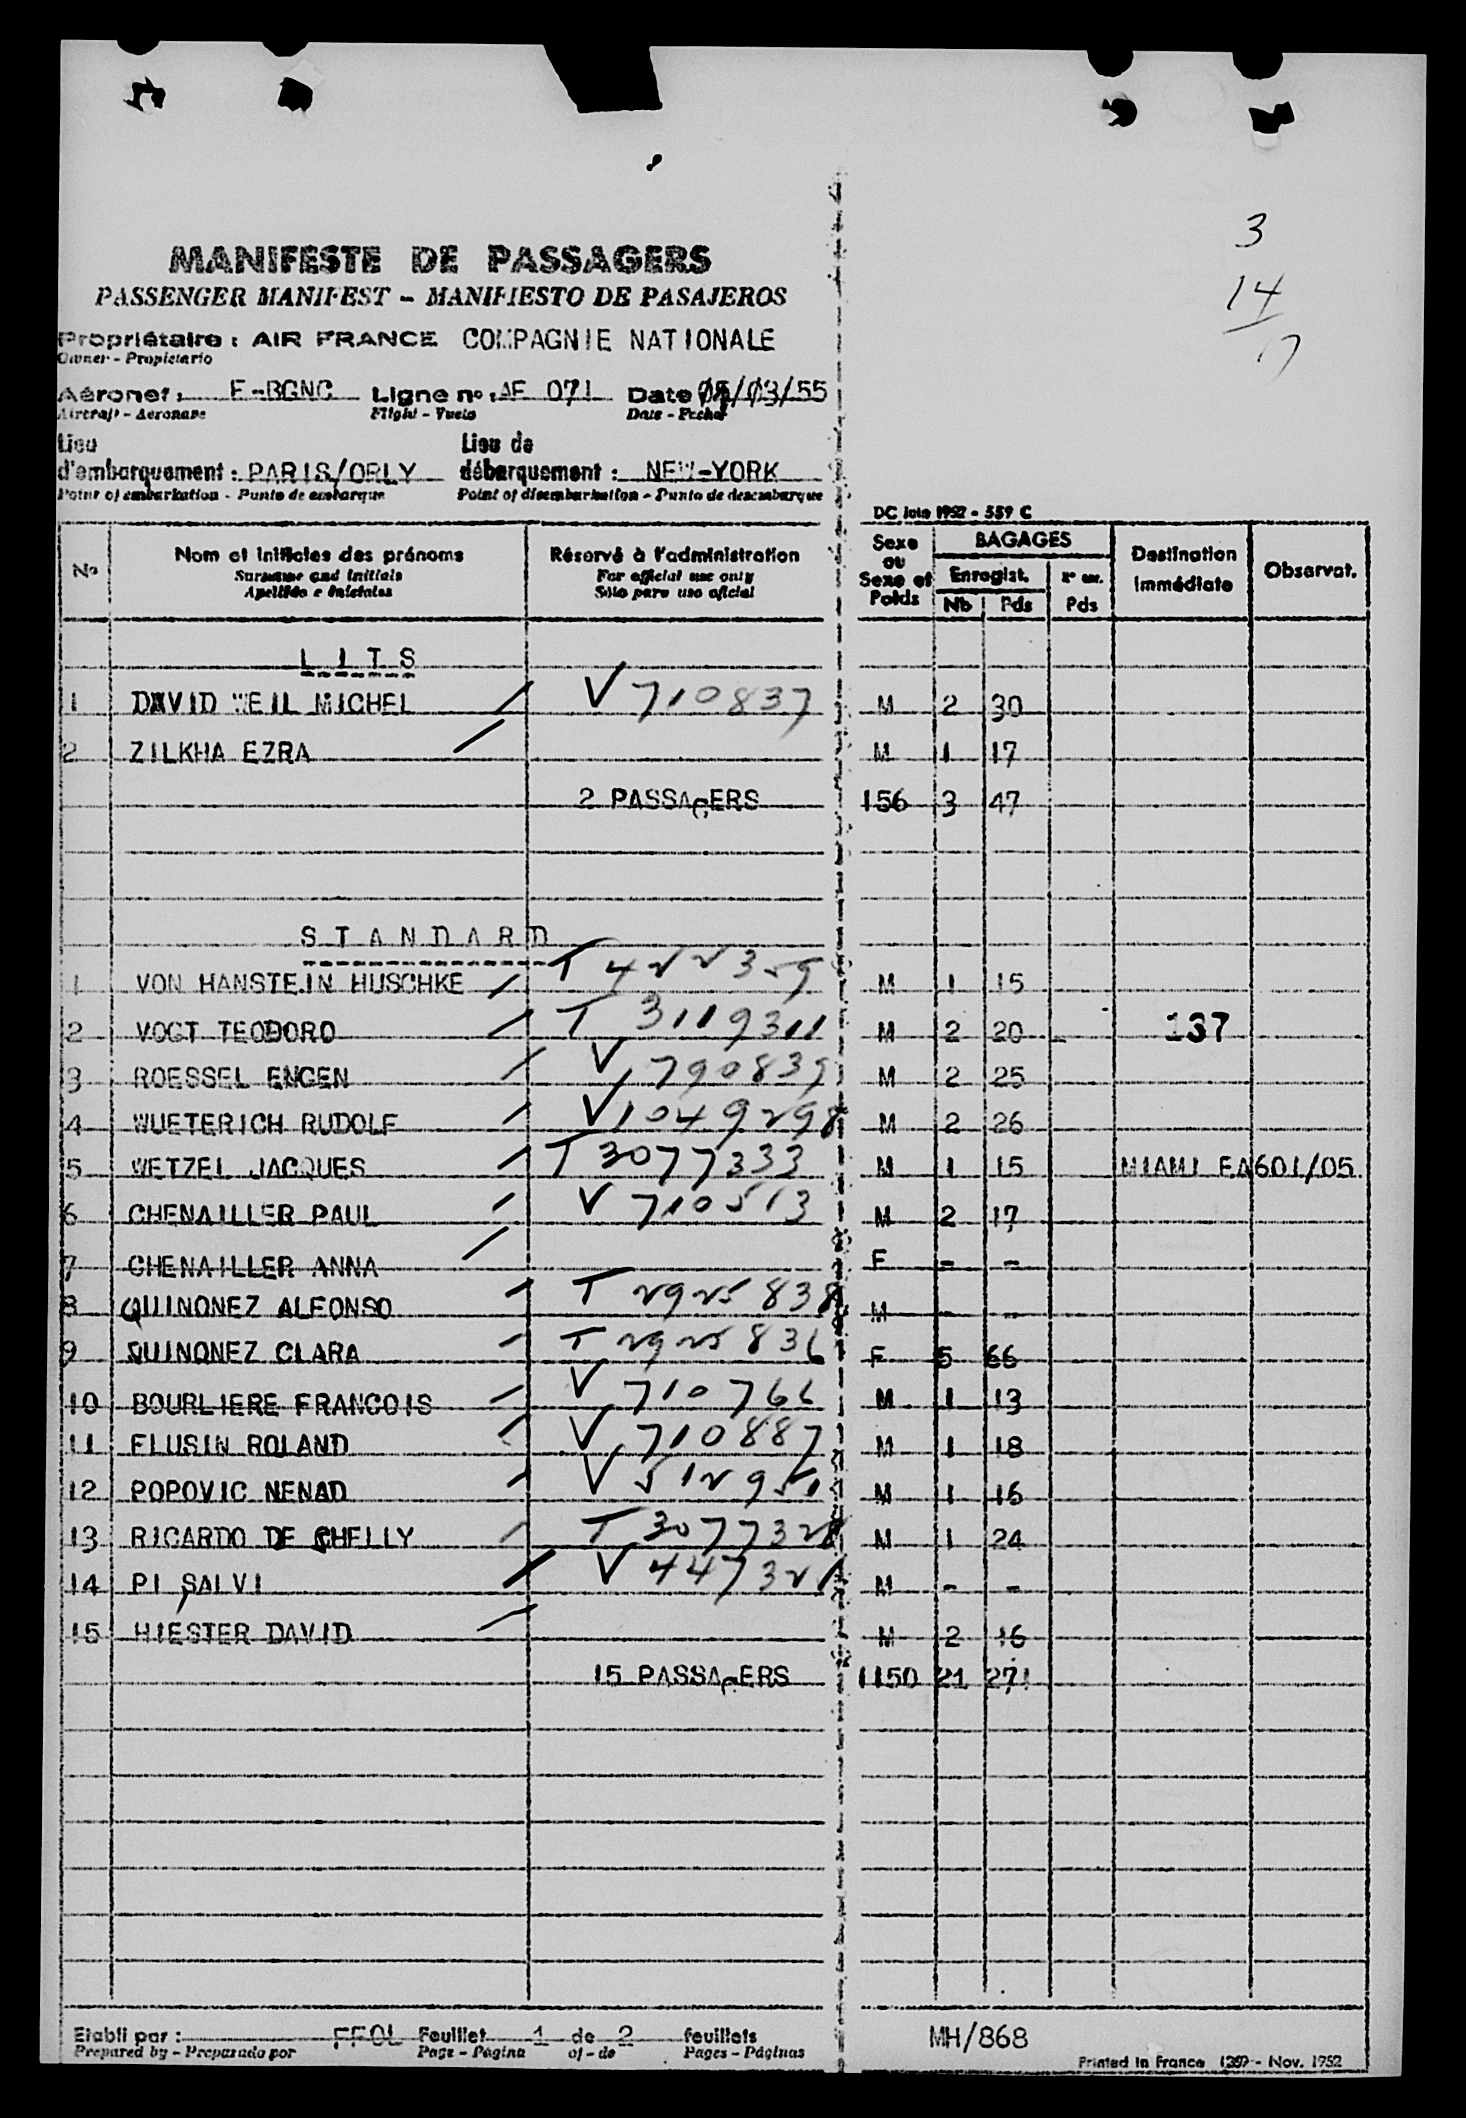 3
14
MANIFESTE DE PASSAGERS
PASSENGER MANIFEST - MANIFIESTO DE PASAJEROS
Propriétaire : AIR FRANCE COMPAGNIE NATIONALE
Owner - Propietario
Aéronef : F-BGNC Ligne nº : AF 071 Date 05/03/55
Aircraft - Aeronave Flight - Vuelo Date - Fecha
Lieu Lieu de
d'embarquement : PARIS/ORLY débarquement : NEW-YORK
Point of embarkation - Punto de embarque Point of disembarkation - Punto de desembarque
DC Juin 1952 - 559 C
Nº Nom et initiales des prénoms Réservé à l'administration Sexe ou Sexe et Poids BAGAGES Destination immédiate Observat.
Surname and initials For official use only Enregist.
Apellido e iniciales Sólo para uso oficial Nb Pds Pds
L I T S
1 DAVID WEIL MICHEL V 710837 M 2 30
2 ZILKHA EZRA M 1 17
2 PASSAGERS 156 3 47
S T A N D A R D
1 VON HANSTEIN HUSCHKE T 422359 M 1 15
2 VOGT TEODORO T 3119311 M 2 20 137
3 ROESSEL ENGEN V 790839 M 2 25
4 WUETERICH RUDOLF V 1049298 M 2 26
5 WETZEL JACQUES T 3077333 M 1 15 MIAMI EA601/05
6 CHENAILLER PAUL V 710513 M 2 17
7 CHENAILLER ANNA F - -
8 QUINONEZ ALFONSO T 2925838 M - -
9 QUINONEZ CLARA T 2925836 F 5 66
10 BOURLIERE FRANCOIS V 710766 M 1 13
11 FLUSIN ROLAND V 710887 M 1 18
12 POPOVIC NENAD V 512951 M 1 16
13 RICARDO DE SHELLY T 3077328 M 1 24
14 PI SALVI V 447321 M - -
15 HIESTER DAVID M 2 16
15 PASSAGERS 1150 21 271
Etabli par : FFOL Feuillet 1 de 2 feuillets MH/868
Prepared by - Preparado por Page - Página of - de Pages - Páginas
Printed in France - Nov. 1952